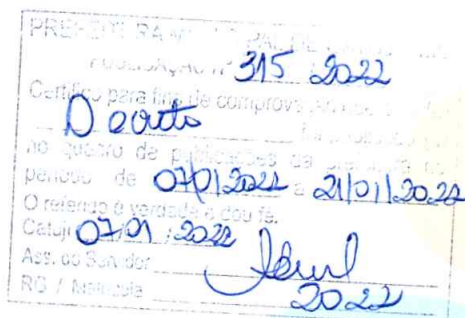 PREFEITURA MUNICIPAL DE
PUBLICAÇÃO Nº 315 2022
Certifico para fins de comprovação que
Decreto
no quadro de publicações da
período de 07/01/2022 a 21/01/2022
O referido é verdade e dou fé.
Catuji 07/01/2022
Ass. do Servidor
RG / Matrícula 2022